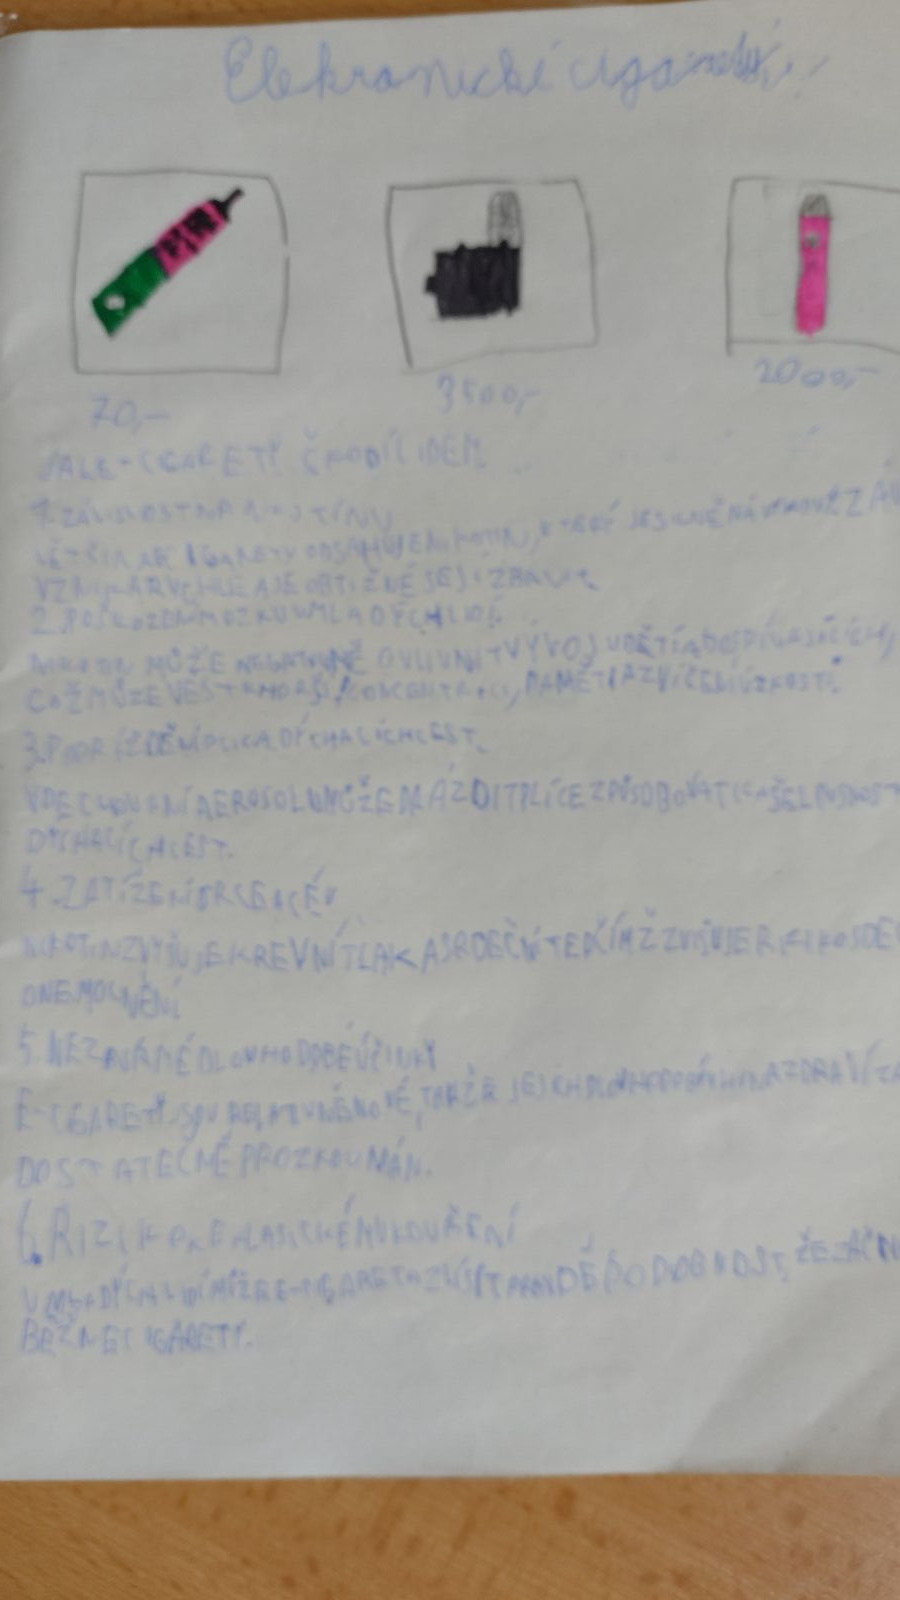 Elektronické cigarety
70,-
3500,-
2000,-
ALE E-CIGARETY ŠKODÍ LIDEM
1. ZÁVISLOST NA NIKOTINU
VĚTŠINA E-CIGARETY OBSAHUJE NIKOTIN, KTERÝ JE SILNĚ NÁVYKOVÝ
VZNIKÁ RYCHLE A JE OBTÍŽNÉ SE JÍ ZBAVIT.
2. POŠKOZENÍ MOZKU U MLADÝCH LIDÍ.
NIKOTIN MŮŽE NEGATIVNĚ OVLIVNIT VÝVOJ U DĚTÍ A DOSPÍVAJÍCÍCH,
COŽ MŮŽE VÉST K HORŠÍ KONCENTRACI, PAMĚTI A ZVÝŠENÍ ÚZKOSTI.
3. PODRÁŽDĚNÍ PLIC A DÝCHACÍCH CEST.
VDECHOVÁNÍ AEROSOLU MŮŽE DRÁŽDIT PLÍCE ZPŮSOBOVAT KAŠEL
DÝCHACÍCH CEST.
4. ZATÍŽENÍ SRDCE A CÉV
NIKOTIN ZVYŠUJE KREVNÍ TLAK A SRDEČNÍ TEP ČÍMŽ ZVYŠUJE RIZIKO
ONEMOCNĚNÍ
5. NEZNÁMÉ DLOUHODOBÉ ÚČINKY
E-CIGARETY JSOU RELATIVNĚ NOVÉ, TAKŽE JEJICH NA ZDRAVÍ
DOSTATEČNĚ PROZKOUMÁN.
6. RIZIKO KE KLASICKÉMU KOUŘENÍ
U MLADÝCH LIDÍ MŮŽE E-CIGARETA ZVÝŠIT PRAVDĚPODOBNOST, ŽE
BĚŽNÉ CIGARETY.